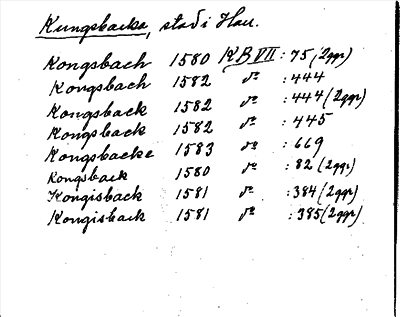 Kungsbacka, stad i Hall.
Kongsbach 1580 KB VII : 75 (2ggr)
Kongsbach 1582 do : 444
Kongsback 1582 do : 444 (2ggr)
Kongsback 1582 do : 445
Kongsbacke 1583 do : 669
Kongsback 1580 do : 82 (2ggr)
Kongisback 1581 do : 384 (2ggr)
Kongisback 1581 do : 385 (2ggr)